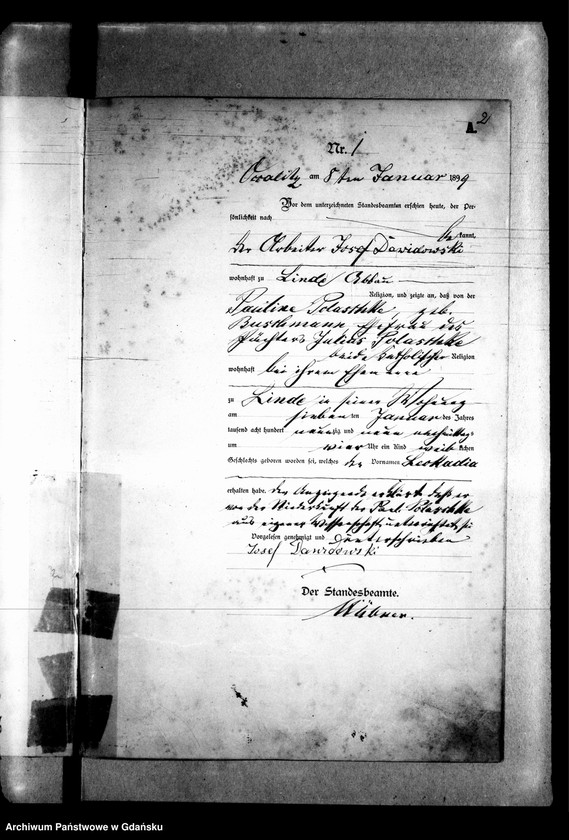 2
A.
Nr. 1
am 8ten Januar 1899
Vor dem unterzeichneten Standesbeamten erschien heute, der Per-
sönlichkeit nach
be kannt,
der Arbeiter Josef Dawidowski
wohnhaft zu Linde Abbau
Religion, und zeigte an, daß von der
Pauline Polaschke, geb.
Buschmann Ehefrau des
Pächters Julius Polaschke
beide katholischer Religion
wohnhaft bei ihrem Ehemann
zu Linde in seiner Wohnung
am sieben ten Januar des Jahres
tausend acht hundert neunzig und neun nachmittags
um vier Uhr ein Kind weib lichen
Geschlechts geboren worden sei, welches den Vornamen Leokadia
erhalten habe. der Anzeigende erklärte daß er
von der Niederkunft der Paul. Polaschke
aus eigener Wissenschaft unterrichtet sei
Vorgelesen, genehmigt und unterschrieben
Josef Dawidowski
Der Standesbeamte.
Hübner.
Archiwum Państwowe w Gdańsku